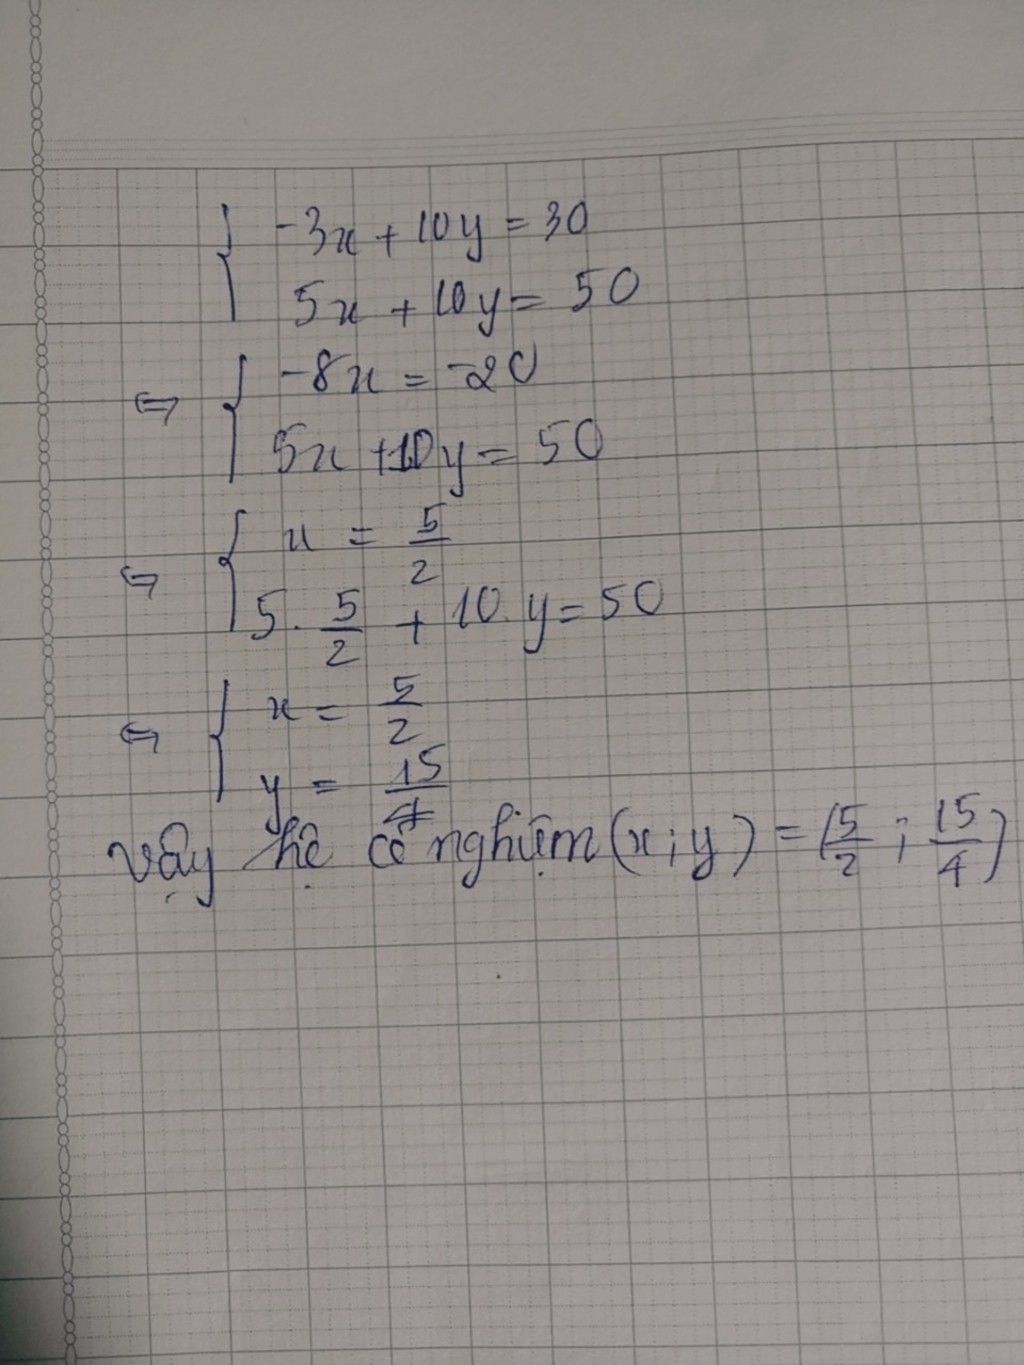 { -3x + 10y = 30
5x + 10y = 50
⇔ { -8x = -20
5x + 10y = 50
⇔ { x = 5/2
5. 5/2 + 10.y = 50
⇔ { x = 5/2
y = 15/4
Vậy hệ có nghiệm (x;y) = (5/2 ; 15/4)